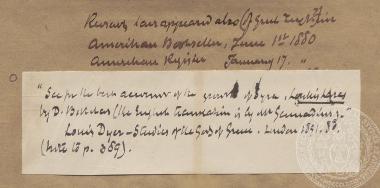 Research has appeared also
American Bookseller, June 1st 1880
American Register January 17. "
"See for the best account of the years of Syra, Loukis Laras
by D. Bikelas (the English translation is by Mr Gennadius)."
Louis Dyer – Studies of the Gods of Greece. London 1891. 8º.
(note to p. 369).